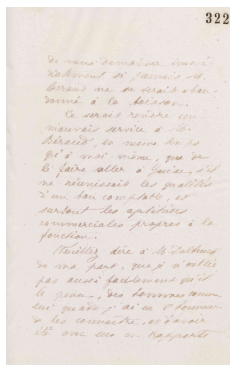 322
de vous demander immé-
diatement si jamais M.
Béraud ne se serait aban-
donné à la boisson.
Ce serait rendre un
mauvais service à M.
Béraud, en même temps
qu'à moi même, que de
le faire aller à Guise, s'il
ne réunissait les qualités
d'un bon comptable, et
surtout les aptitudes
commerciales propres à la
fonction.
Veuillez dire à M.
de ma part, que je n'oublie
pas aussi facilement qu'il
le pense, des hommes comme
lui quand j'ai eu l'honneur
de les connaître, et d'avoir
été avec eux en rapports